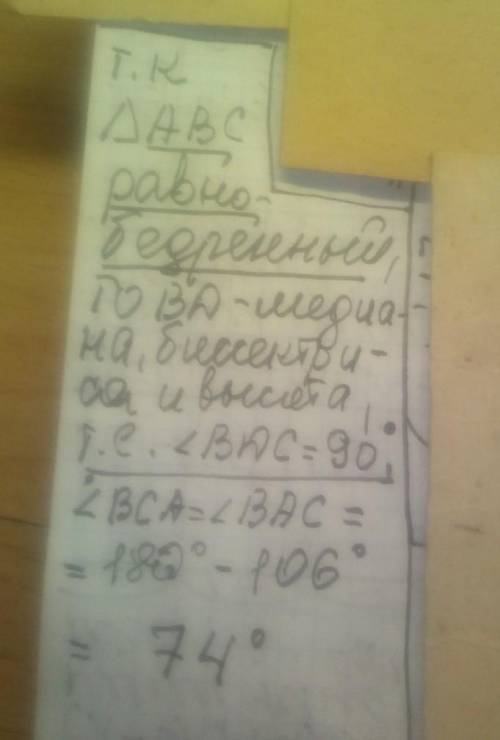 т.к
△ABC
равно-
бедренный,
то BD-медиа-
на, биссектри-
са и высота,
т.е. ∠BDC=90°.
∠BCA=∠BAC=
=180°-106°
= 74°